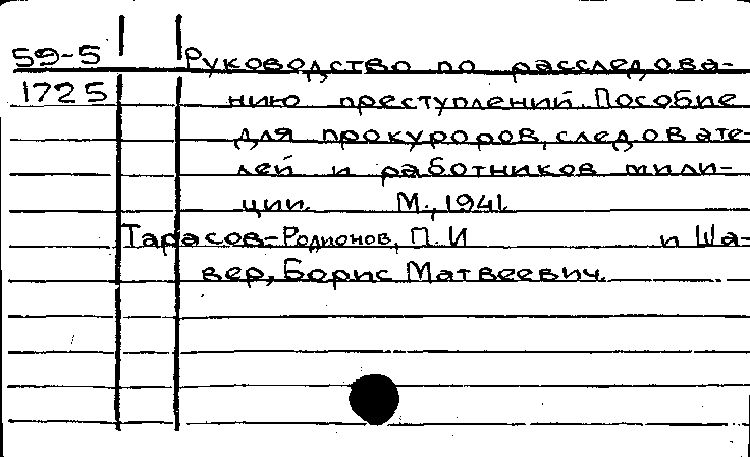 59-5 Руководство по расследова-
1725 нию преступлений. Пособие
для прокуроров, следовате-
лей и работников мили-
ции. М., 1941.
Тарасов-Родионов, П. И и Ша-
вер, Борис Матвеевич.